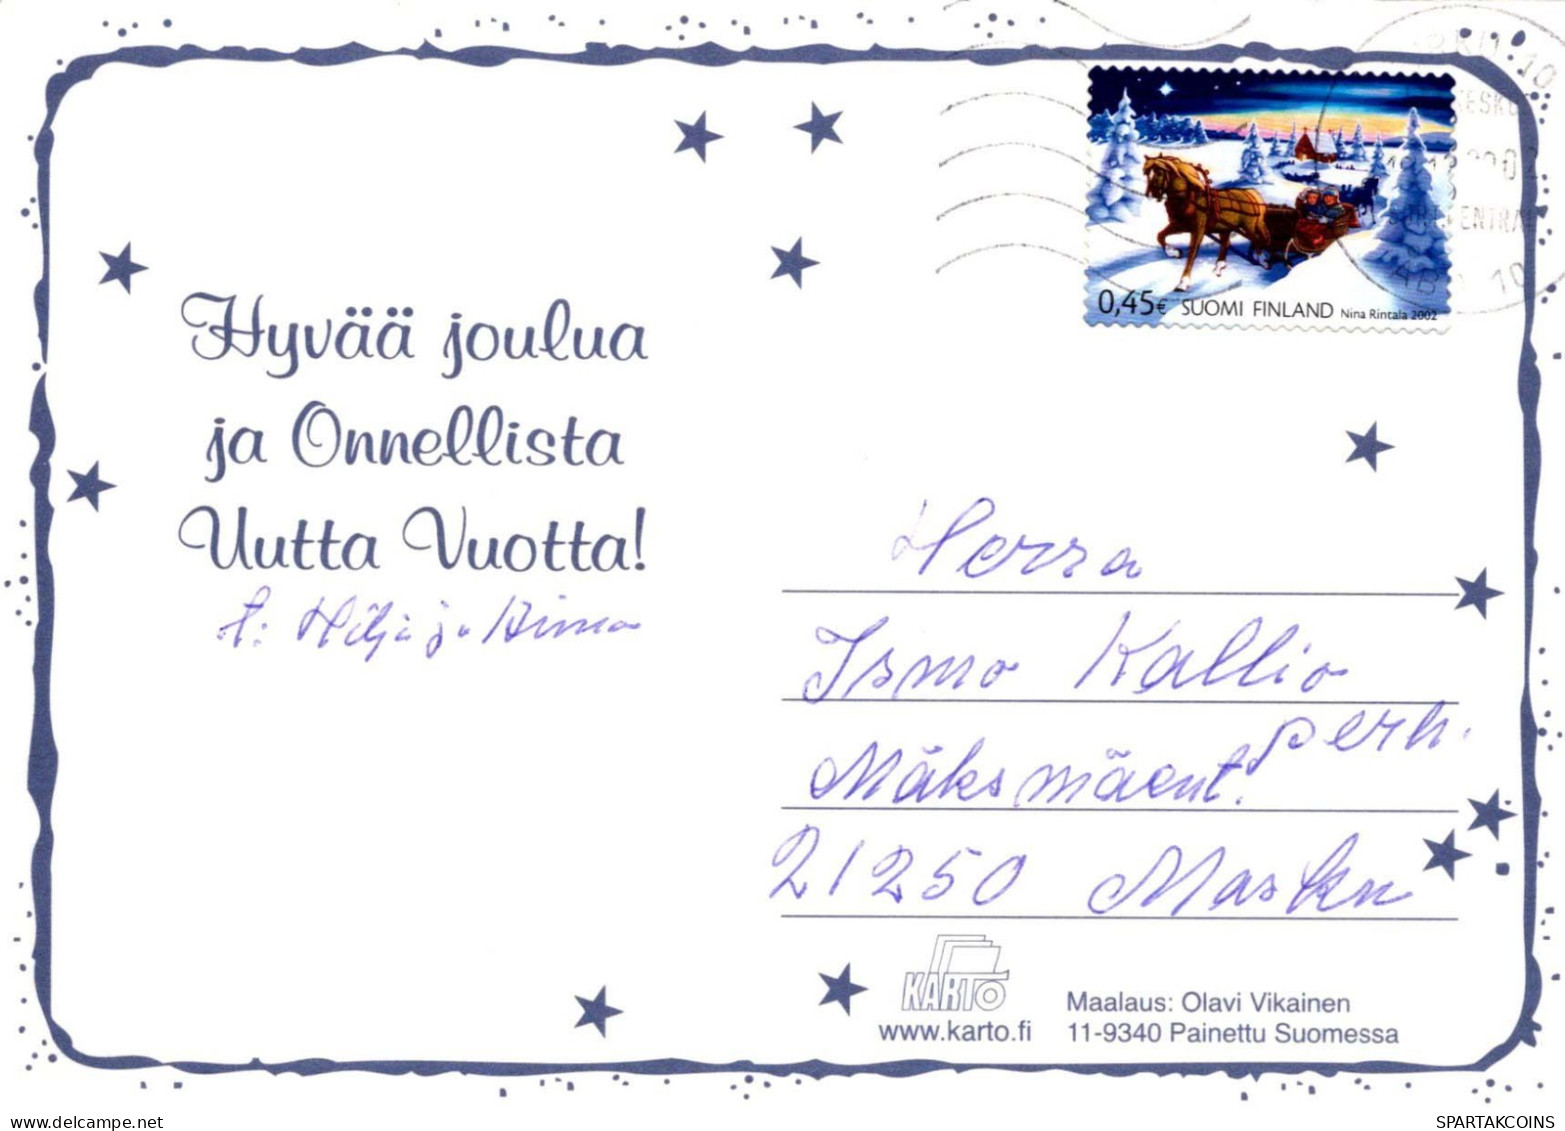 Hyvää joulua
ja Onnellista
Uutta Vuotta!
t: Hilja ja
0,45€ SUOMI FINLAND Nina Rintala 2002
10
2002
ABO 10
Herra
Ismo Kallio
perh.
Mäksmäent.
21250 Masku
KARTO
www.karto.fi
Maalaus: Olavi Vikainen
11-9340 Painettu Suomessa
delcampe.net
SPARTAKCOINS